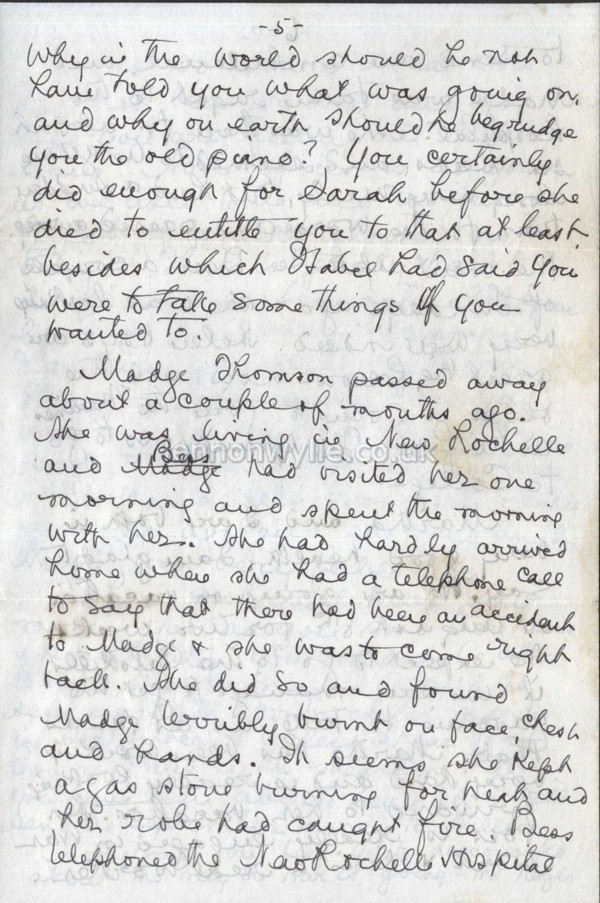 -5-
Why in the world should he not
have told you what was going on,
and why on earth should he begrudge
you the old piano? You certainly
did enough for Sarah before she
died to entitle you to that at least
besides which Isabel had said you
were to take some things if you
wanted to.
Madge Thomson passed away
about a couple of months ago.
She was living in New Rochelle
and Madge Bess had visited her one
morning and spent the morning
with her. She had hardly arrived
home when she had a telephone call
to say that there had been an accident
to Madge & she was to come right
back. She did so and found
Madge terribly burnt on face, chest
and hands. It seems she kept
a gas stove burning for heat and
her robe had caught fire. Bess
telephoned the New Rochelle Hospital
bennonwylie.co.uk